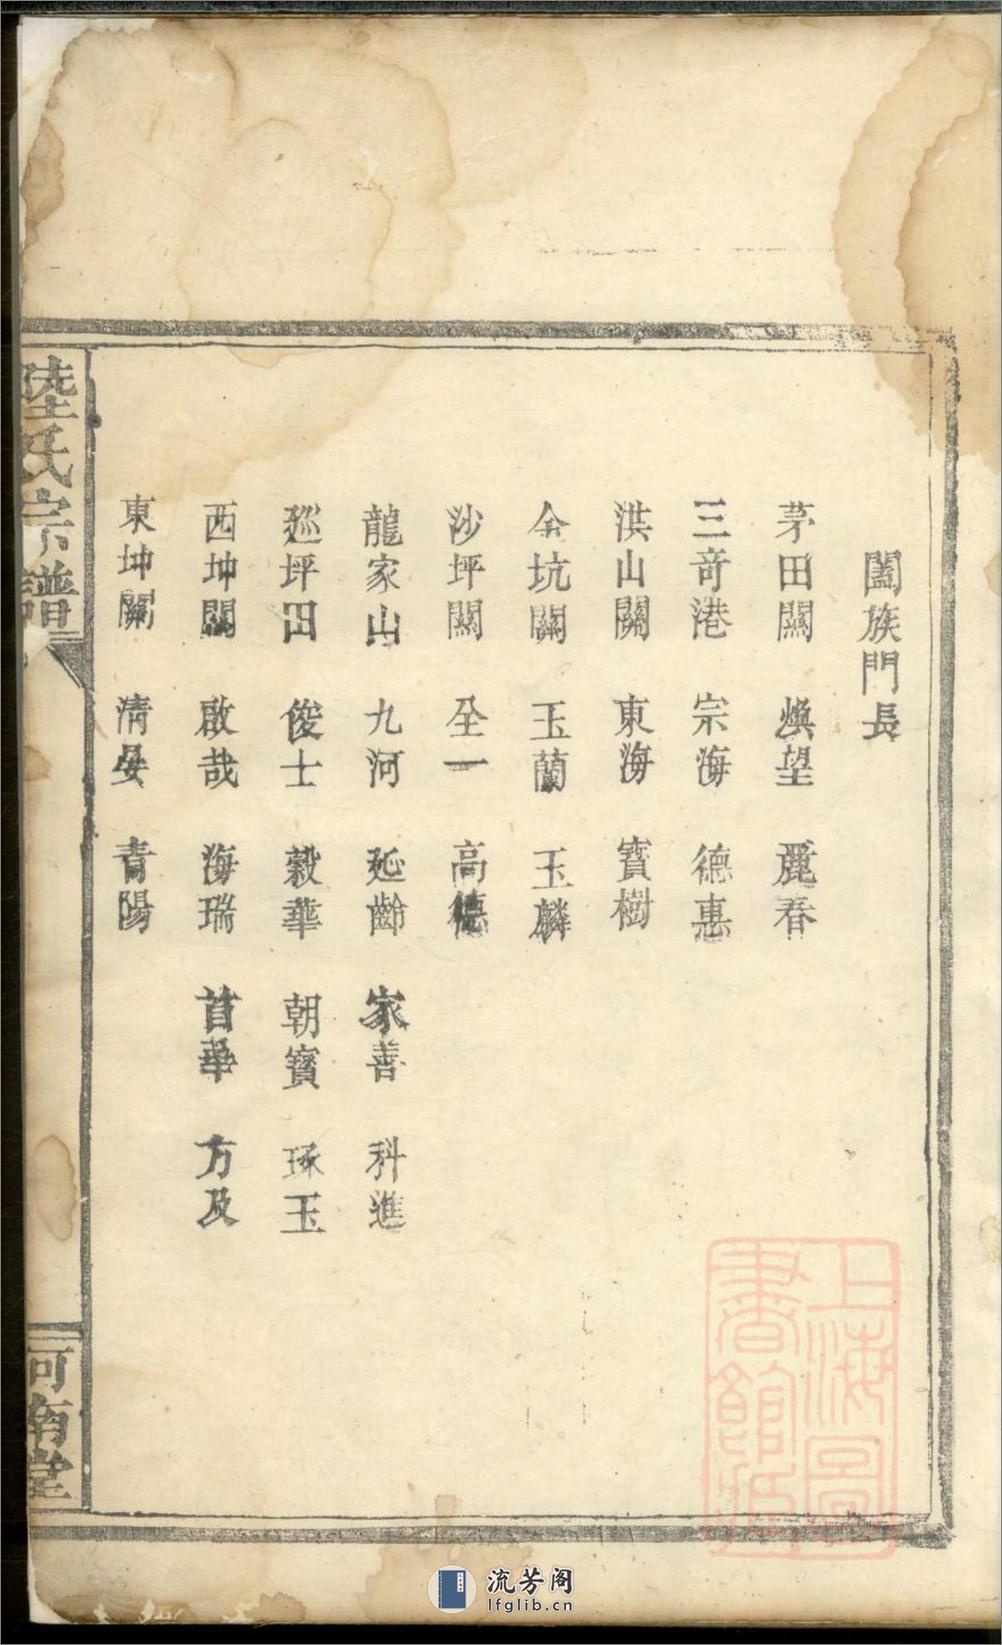 闔族門長
茅田關 煥望 麗春
三奇港 宗海 德惠
洪山關 東海 寶樹
余坑關 玉蘭 玉麟
沙坪關 全一 高德
龍家山 九河 延齡 家善 科進
廵坪田 俊士 穀華 朝寶 琢玉
西坤關 啟哉 海瑞 首華 方及
東坤關 清晏 青陽
陸氏宗譜
河南堂
上海圖書館藏
流芳阁
lfglib.cn